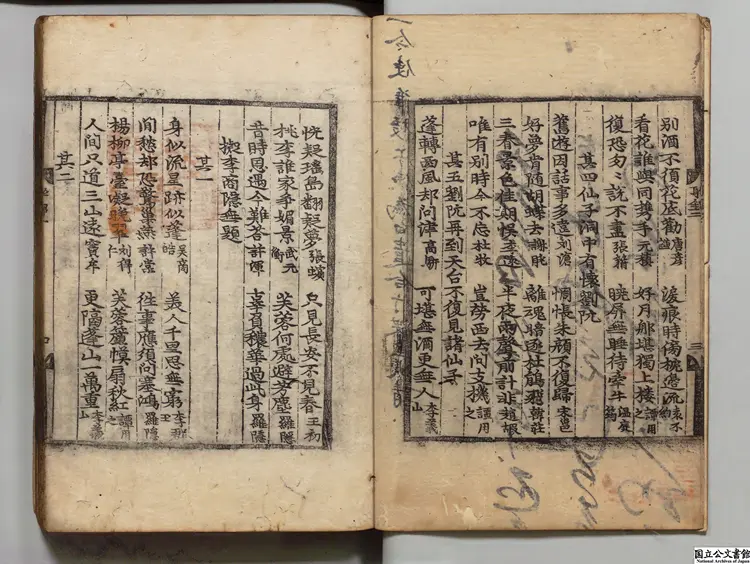 別酒不須花底勸 唐彦謙 淚痕時傷枕邊流 袁不約
看花誰與同携手 元稹 好月那堪獨上樓 譚用之
復恐匆匆說不盡 張籍 曉屏無睡待牽牛 温庭筠
其四仙子洞中有懷劉阮
舊遊因話事多違 劉滄 惆悵朱顏不復歸
好夢肯隨胡蝶去 離魂暗逐杜鵑飛 韓莊
三春景色 半夜雨聲前計非 趙嘏
唯有別時今不忘 杜牧 豈勞西去問支機 譚用之
其五劉阮再到天台不復見諸仙子
蓬轉西風却問津 高駢 可堪無酒更無人 李義山
恍疑瑤島翻疑夢 張蠙 只見長安不見春 王初
桃李誰家爭媚景 武元衡 芙蓉何處避芳塵 羅隱
昔時恩遇今難荅 許渾 辜負穠華過此身 羅隱
擬李商隐無題
其一
身似流星跡似蓬 吳商皓 美人千里思無窮 李郢
閒愁却恐驚 許棠 往事應須問塞鴻 羅隱
楊柳亭臺凝晚翠 劉得仁 芙蓉簾幙扇秋紅 譚用之
其二
人間只道三山遠 竇牟 更隔蓬山一萬重 李義山
国立公文書館
National Archives of Japan